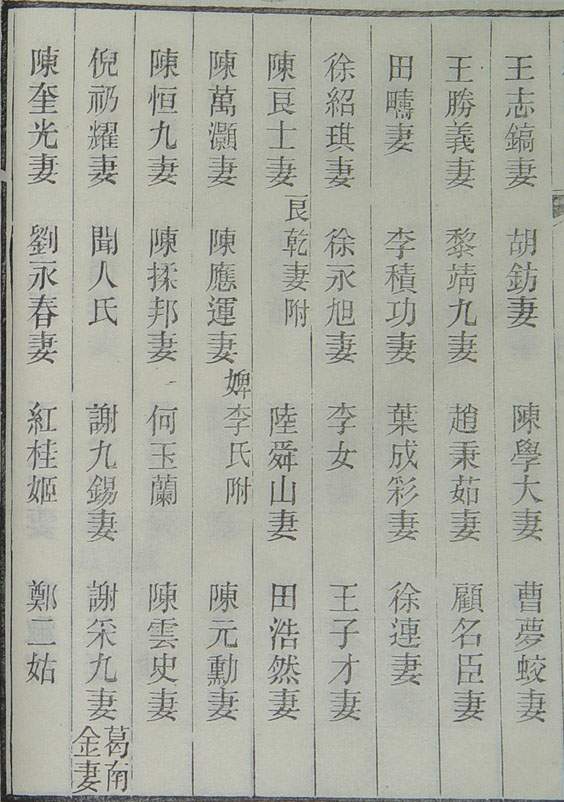 王志鎬妻 胡鈁妻 陳學大妻 曹夢蛟妻
王勝義妻 黎靖九妻 趙秉茹妻 顧名臣妻
田疇妻 李積功妻 葉成彩妻 徐連妻
徐紹琪妻 徐永旭妻 李女 王子才妻
陳良士妻 良乾妻附 陸舜山妻 田浩然妻
陳萬灝妻 陳應運妻 婢李氏附 陳元勳妻
陳恒九妻 陳揉邦妻 何玉蘭 陳雲史妻
倪礽耀妻 聞人氏 謝九錫妻 謝采九妻 葛南金妻
陳奎光妻 劉永春妻 紅桂姬 鄭二姑